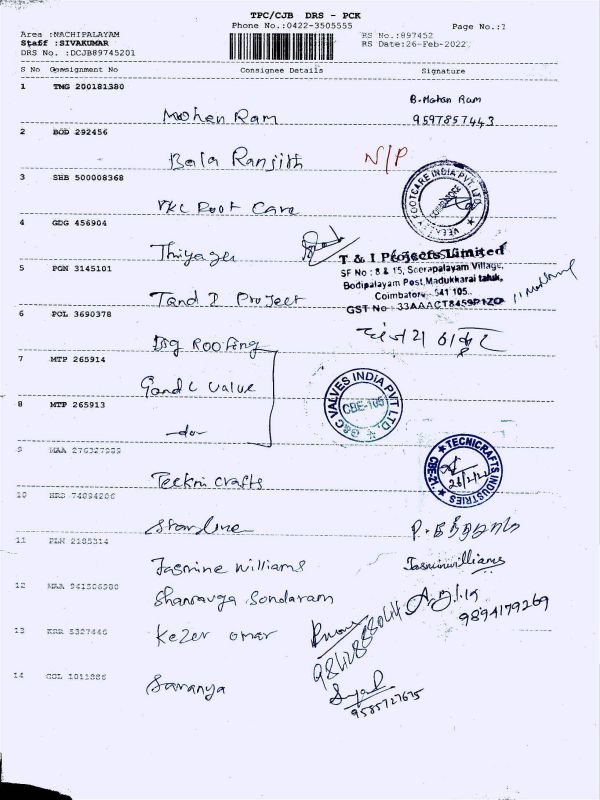 TPC/CJB DRS - PCK
Phone No.:0422-3505555
Page No.:?
Area :MACHIPALAYAM
RS No.:897452
Staff :SIVAKUMAR
RS Date:26-Feb-2022
DRS No. :DCJB89745201
S No Consignment No Consignee Details Signature
1 TMG 200181380
Mohen Ram B.Mohan Ram
9597857443
2 BOD 292456
Bala Ranjith N/P
3 SHB 500008368
VKC Foot Care
VEEKAY FOOTCARE INDIA PVT. LTD.
COIMBATORE
4 GDG 456904
Thiyagu
T & I Projects Limited
SF No : 8 & 15, Seerapalayam Village,
Bodipalayam Post, Madukkarai taluk,
Coimbatore 641 105.
GST No 33AAACT8459P1ZO
5 PGN 3145101
T and I Project
6 POL 3690378
Big Roofing
7 MTP 265914
G and C value
G&C VALVES INDIA PVT LTD.
CBE-105
8 MTP 265913
-do-
9 MAA 276327989
Teckni crafts
TECNICRAFTS INDUSTRIES
CBE-21.
26/2/22
10 HRD 74894206
Starline
11 PLN 2185314
Jasmine williams Jasminwilliams
12 MAA 941506980
Shanmuga Sondaram
9894179269
13 KRR 5327446
Kezer omar
9842888064
14 COL 1011886
Saranya
9585727675